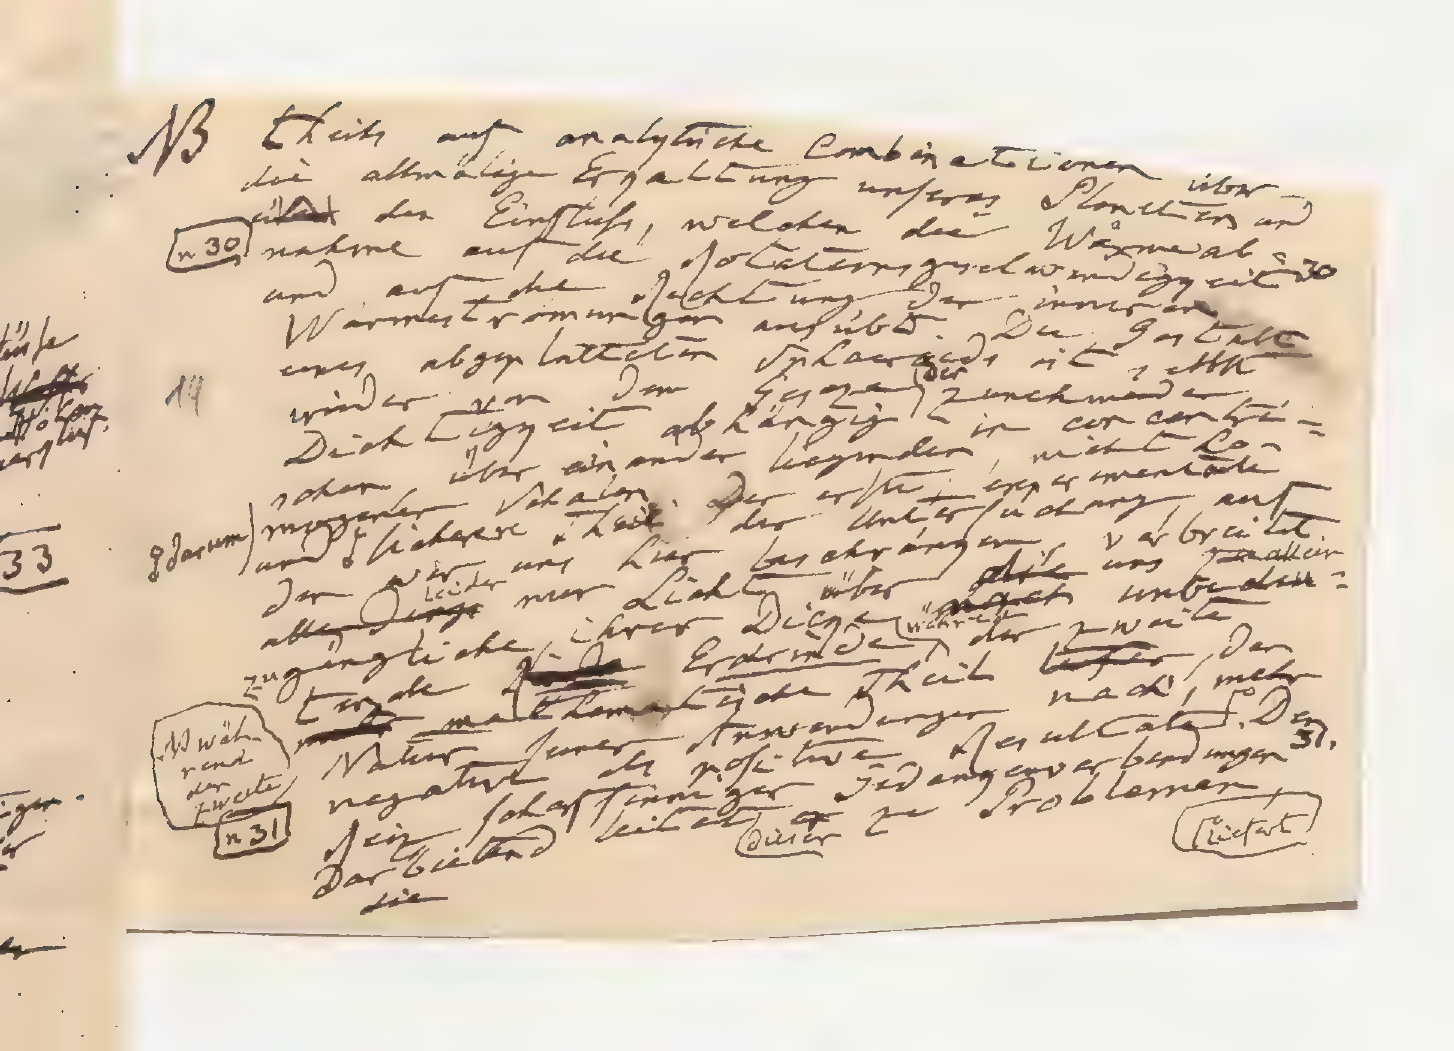 NB theils auf analytische Combinationen über
die allmälige Erkaltung unseres Planeten und
den Einfluss, welchen die Wärmeab=
n 30
nahme auf die Rotationsgeschwindigkeit 30
und auf die Richtung der inneren
Wärmeströmungen ausübt. Die Gestalt
eines abgeplatteten Sphaeroids ist selbst
14
wieder von dem Geseze der zunehmender
Dichtigkeit abhängig in concentri=
schen über einander liegenden, nicht ho-
mogener Schalen. Der erste, experimentale
darum
und sicherere Theil der Untersuchung, auf
den wir uns hier beschränken, verbreitet
allerdings leider nur Licht über die uns allein
zugängliche, ihrer Dicke nach unbedeu=
tende Erdrinde, während der zweite
mathematische Theil der
Natur seiner Anwendungen nach, mehr
NB wäh-
rend
der
zweite
negative als positive Resultate. Den
31.
n 31
Reiz scharfsinniger Gedankenverbindungen
darbietend leitet er dieser zu Problemen
liefert
die
33